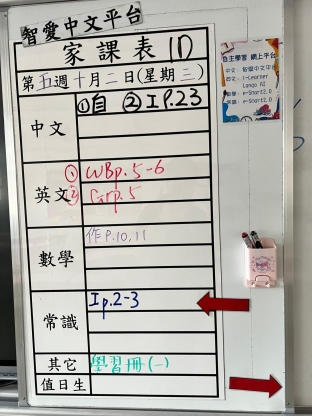 智愛中文平台
家課表 1D
第五週十月二日(星期三)
中文
①自 ②I P.23
英文
① WBp.5-6
② Grp.5
數學
作P.10,11
常識
Ip.2-3
其它
學習冊(一)
值日生
自主學習 網上平台
中文:智愛中文平台
英文:i-Learner
Lango AI
數學:e-Smart2.0
常識:e-Smart2.0